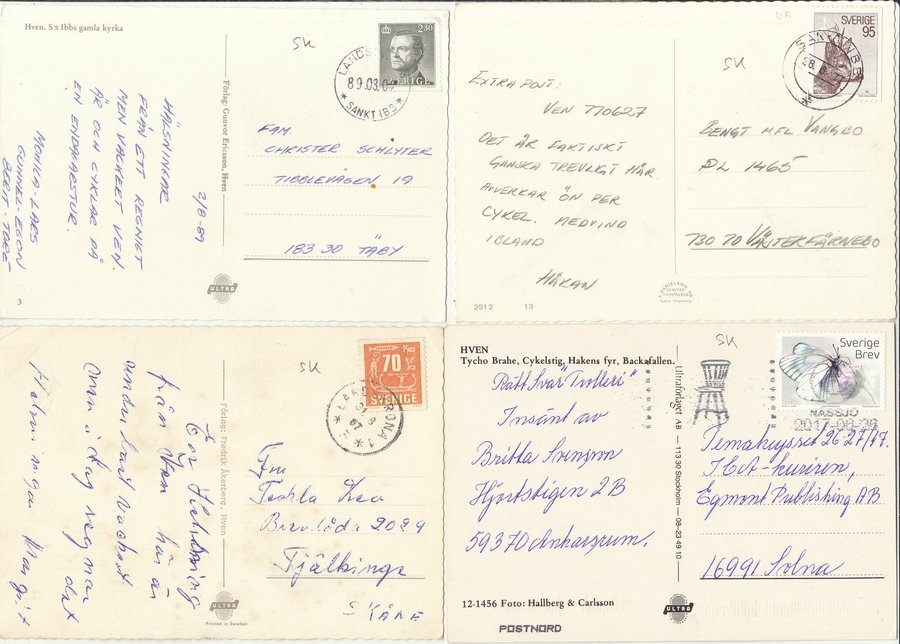 Hven. S:t Ibbs gamla kyrka
SK
2/8-89
HÄLSNINGAR
FRÅN ETT REGNIGT
MEN VACKERT VEN.
ÄR OCH CYKLAR PÅ
EN ENDAGARSTUR.
LARS
GUNNEL-EGON
BRIT-TORE
3
Förlag: Gunvor Ericsson, Hven
ULTRA
2.80
SVERIGE
LANDS
89.03.0
SANKT IB
FAM.
CHRISTER SCHLYTER
TIBBLEVÄGEN 19
183 30 TÄBY
UF
SK
SVERIGE
95
28.6.7
EXTRA POST:
VEN 770627
DET ÄR FAKTISKT
GANSKA TREVLIGT HÄR
AVVERKAR ÖN PER
CYKEL. MEDVIND
IBLAND
HÅKAN
2512 13
BENGT MFL VANGBO
PL 1465
730 70 VÄSTERFÄRNEBO
SK
En Hälsning
från Ven här är
underbart vackert
men i dag regnar det
Margit
Förlag: Fredrik Åkerberg, Hven
ULTRA
Printed in Sweden
70
SVERIGE
LANDSKRONA 1
31
8
67
Tekla
2024
Fjälkinge
SKÅNE
HVEN
Tycho Brahe, Cykelstig, Hakens fyr, Backafallen.
SK
Rätt Svar "Trolleri"
Insänt av
Britta Svenzon
Hjortstigen 2B
59370 Ankarsrum.
Ultraförlaget AB 113 30 Stockholm 08-23 49 10
ULTRA
12-1456 Foto: Hallberg & Carlsson
POSTNORD
Sverige
Brev
NÄSSJÖ
2017-08-
Temakrysset 26-27/17.
ICA-kuriren,
Egmont Publishing AB
16991 Solna